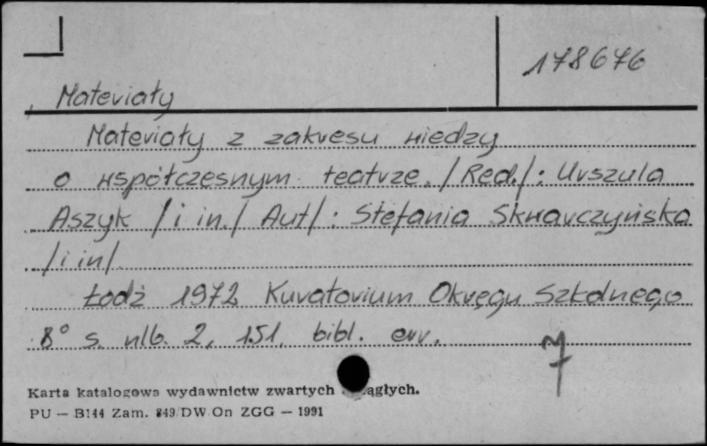 178676
Materiały
Materiały z zakresu wiedzy
o współczesnym teatrze. /Red./: Urszula
Aszyk /i in./ Aut/: Stefania Skwarczyńska
/i in/.
Łódź 1972 Kuratorium Okręgu Szkolnego
8° s. nlb. 2, 151. bibl. err.
7
Karta katalogowa wydawnictw zwartych ągłych.
PU — B144 Zam. 849/DW On ZGG — 1991